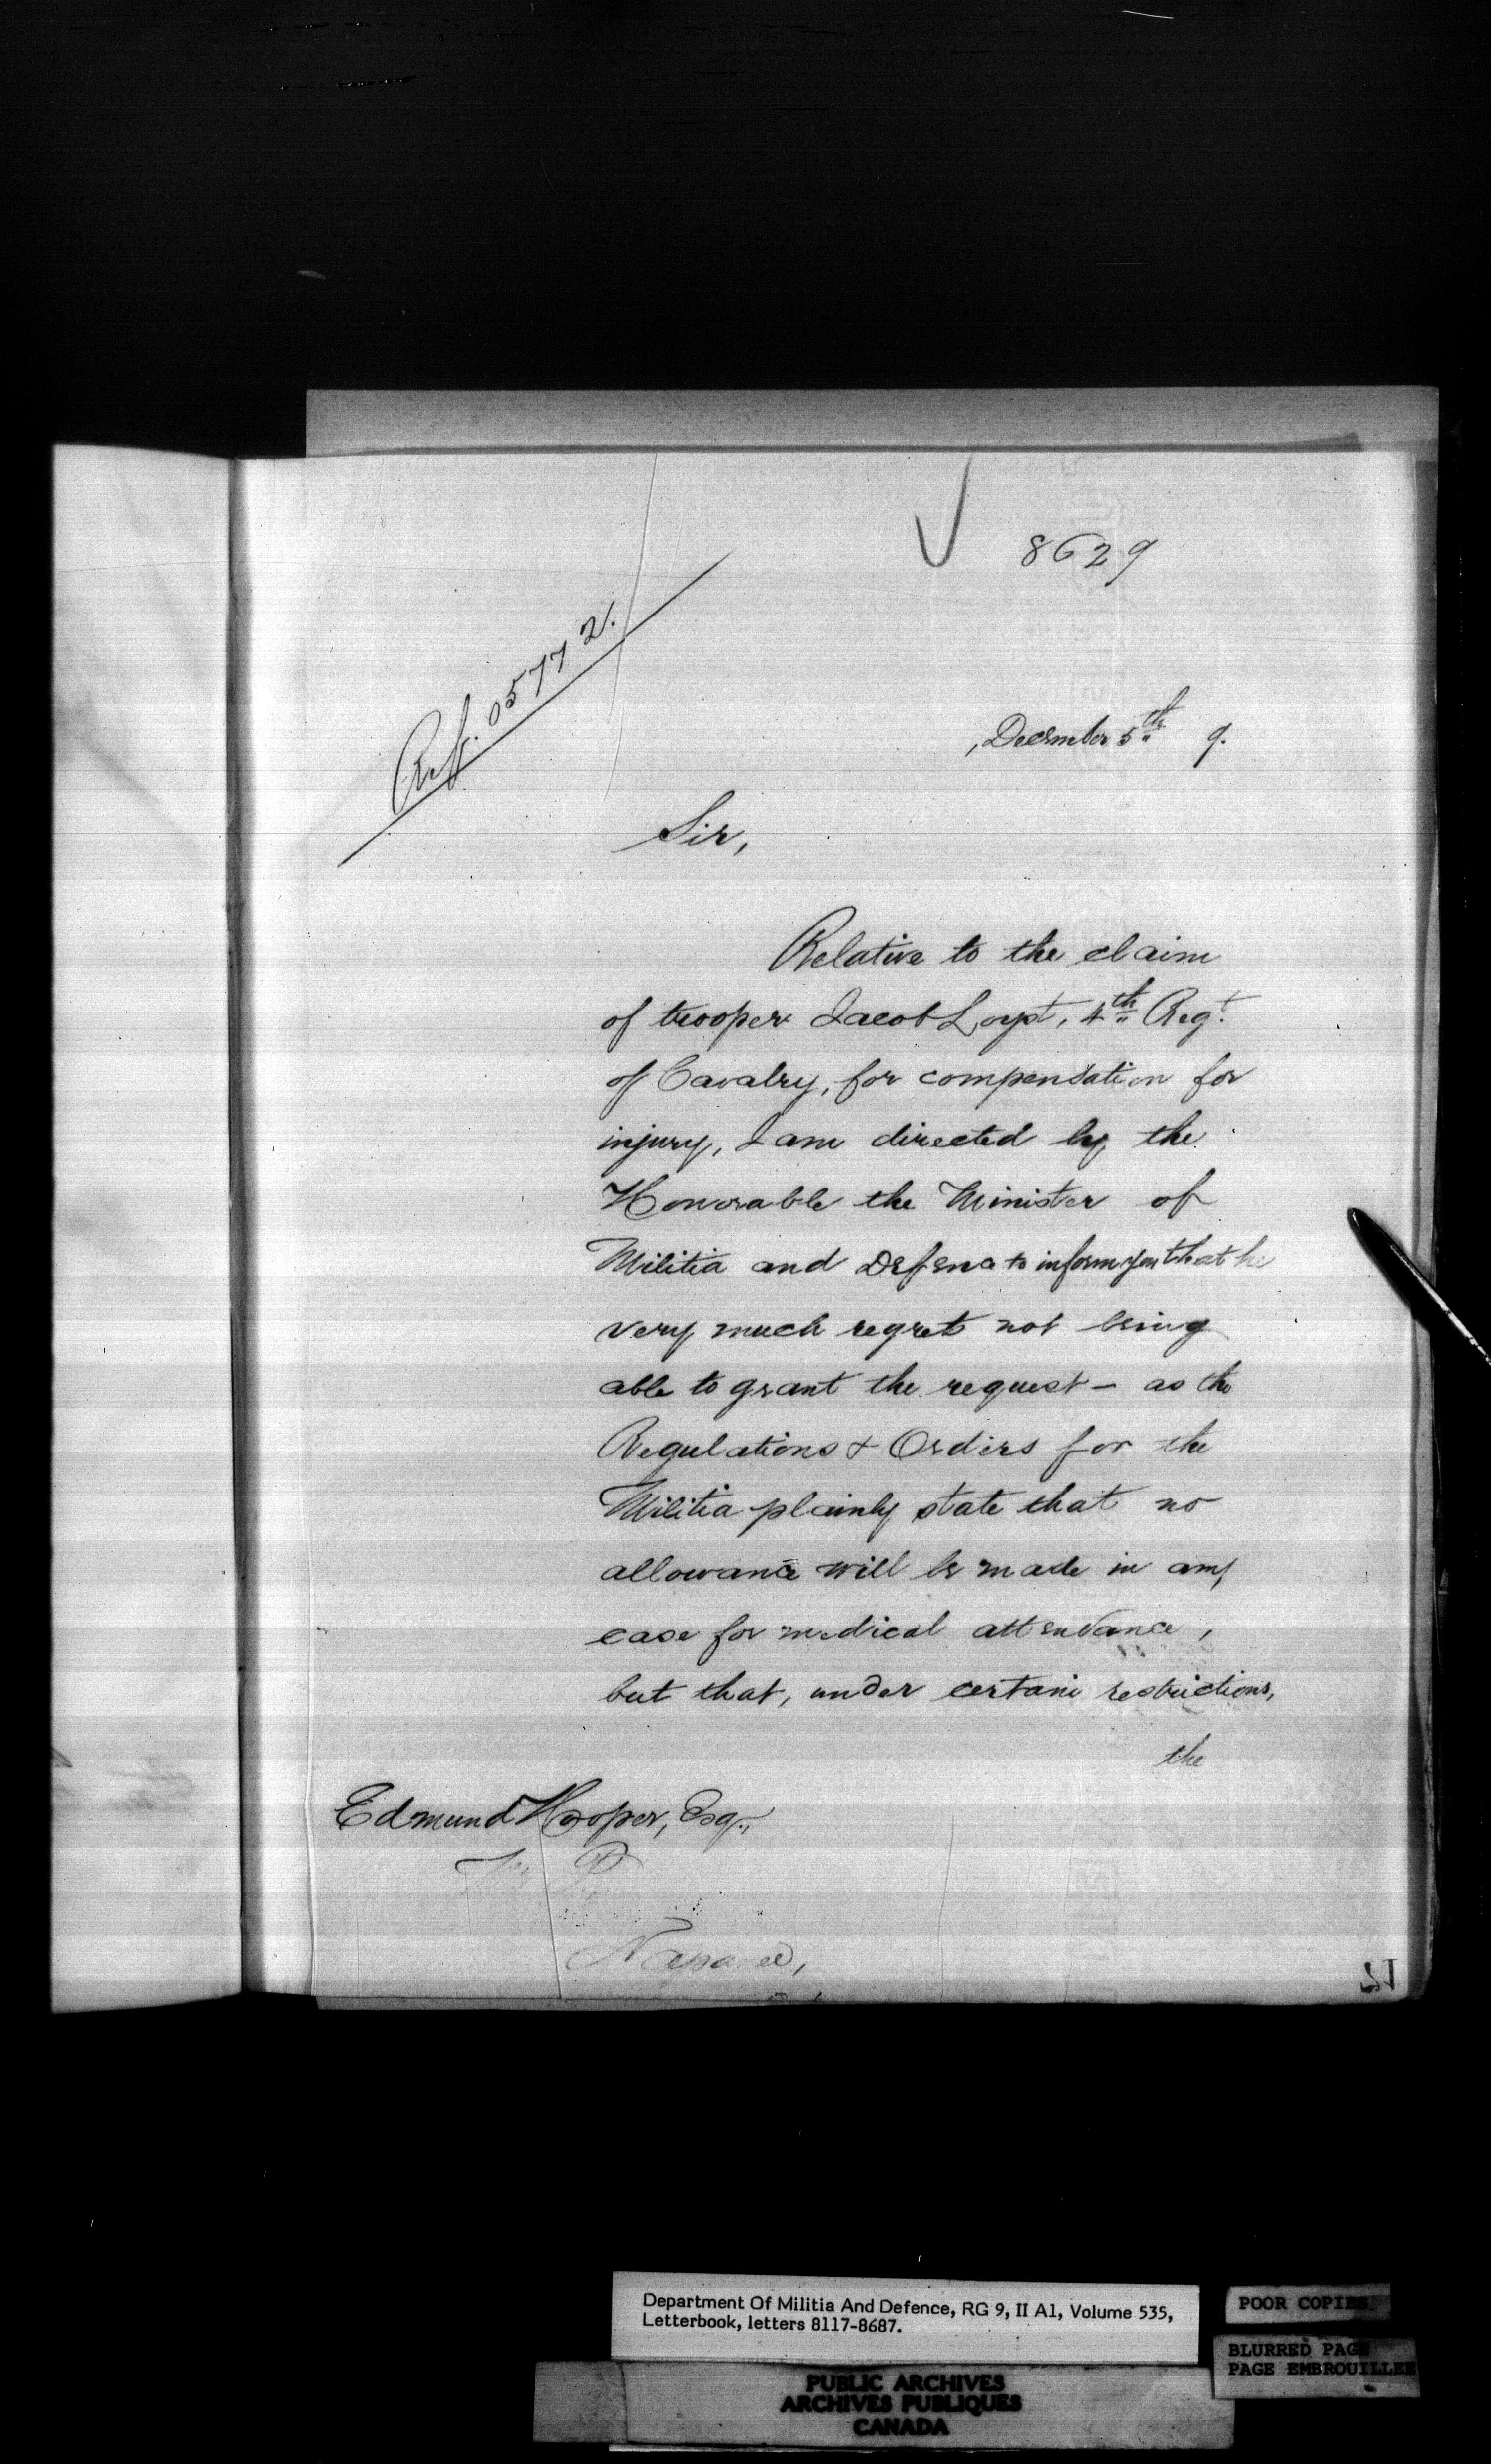 8629
Ref. 05772.
, December 5th 9.
Sir,
Relative to the claim
of trooper Jacob Loypt, 4th Regt.
of Cavalry, for compensation for
injury, I am directed by the
Honorable the Minister of
Militia and Defence to inform you that he
very much regrets not being
able to grant the request - as the
Regulations & Orders for the
Militia plainly state that no
allowance will be made in any
case for medical attendance,
but that, under certain restrictions,
the
Edmund Hooper, Esq.,
M. P.
Napanee,
Department Of Militia And Defence, RG 9, II A1, Volume 535,
Letterbook, letters 8117-8687.
POOR COPIES
BLURRED PAGE
PAGE EMBROUILLEE
PUBLIC ARCHIVES
ARCHIVES PUBLIQUES
CANADA